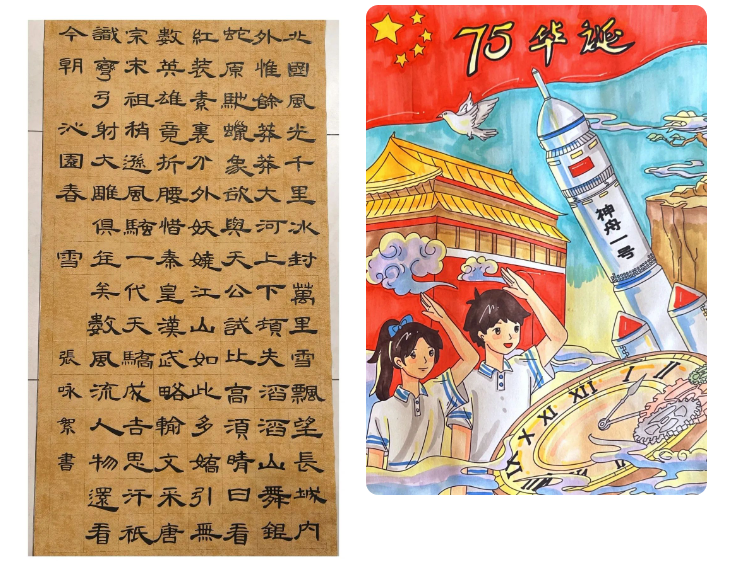 北國風光千里冰封萬里雪飄望長城內
外惟餘莽莽大河上下頓失滔滔山舞銀
蛇原馳蠟象欲與天公試比高須晴日看
紅裝素裹分外妖嬈江山如此多嬌引無
數英雄竟折腰惜秦皇漢武略輸文采唐
宗宋祖稍遜風騷一代天驕成吉思汗祇
識彎弓射大雕俱往矣數風流人物還看
今朝 沁園春 雪 張咏絮書
75 华诞
神舟一号
X IX XI XII I II